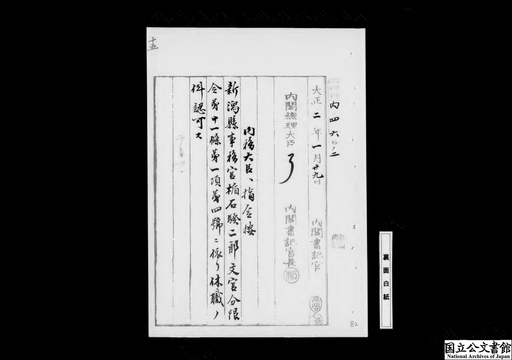 内四六ノ二
大正二年一月廿九日
内閣書記官
内閣總理大臣
内閣書記官長
内務大臣へ指令按
新潟縣事務官楯石驗二郎文官分限
令第十一條第一項第四號ニ依リ休職ノ
件認可ス
十五
82
裏面白紙
国立公文書館
National Archives of Japan